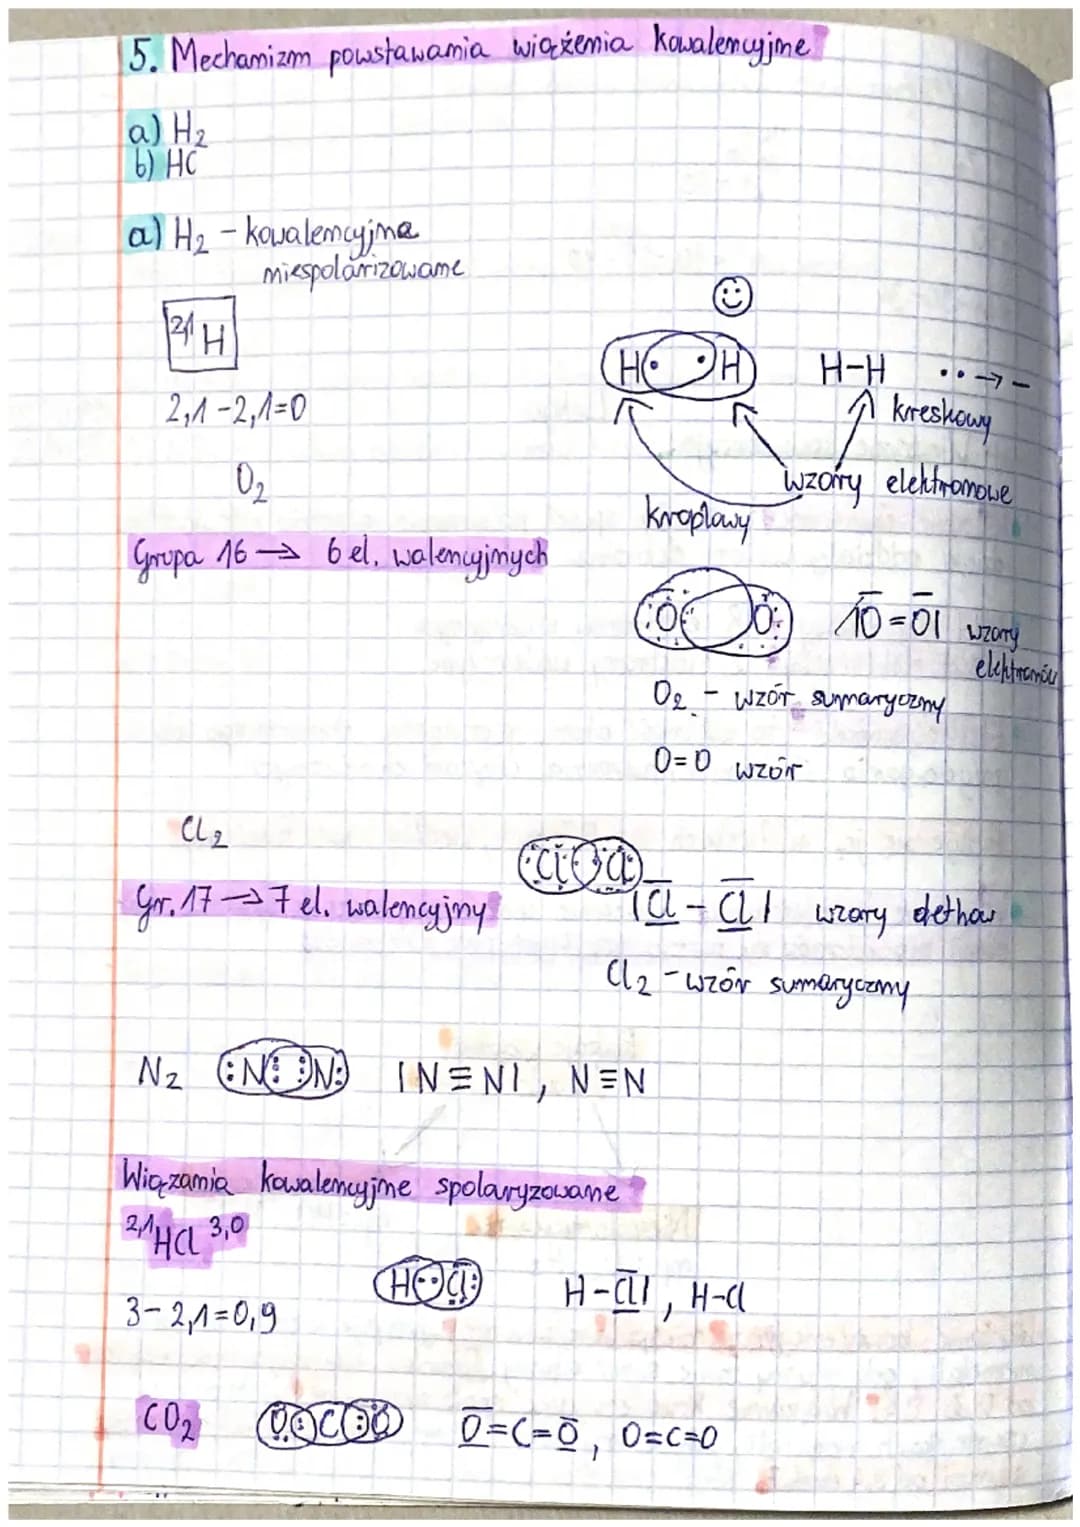 5. Mechanizm powstawania wiążenia kowalencyjne
a) H₂
b) HC
a) H₂ – kowalencyjne
niespolarizowane
2,1 H
2,1 - 2,1 = 0
H· ·H H-H ·· → –
kreskowy
wzory elektronowe
kroplowy
O₂
Grupa 16 → 6 el. walencyjnych
O O |O̅=O̅| wzory
O₂ - wzór sumaryczny
O=O wzór
Cl₂
Gr. 17 → 7 el. walencyjny
Cl Cl
|C̲̅l̲̅ - C̲̅l̲̅| wzory
Cl₂ - wzór sumaryczny
N₂ :N⋮ ⋮N: |N≡N|, N≡N
Wiązania kowalencyjne spolaryzowane
2,1 HCl 3,0
H··Cl: H-C̲̅l̲̅|, H-Cl
3 - 2,1 = 0,9
CO₂ O:C:O O̲̅=C=O̲̅, O=C=O